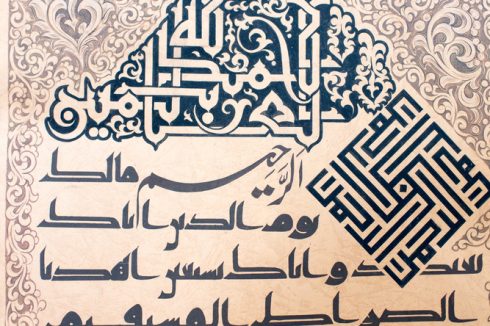 الحمد لله
رب العالمين
الرحمن
الرحيم مالك
يوم الدين اياك
نعبد واياك نستعين اهدنا
الصراط المستقيم